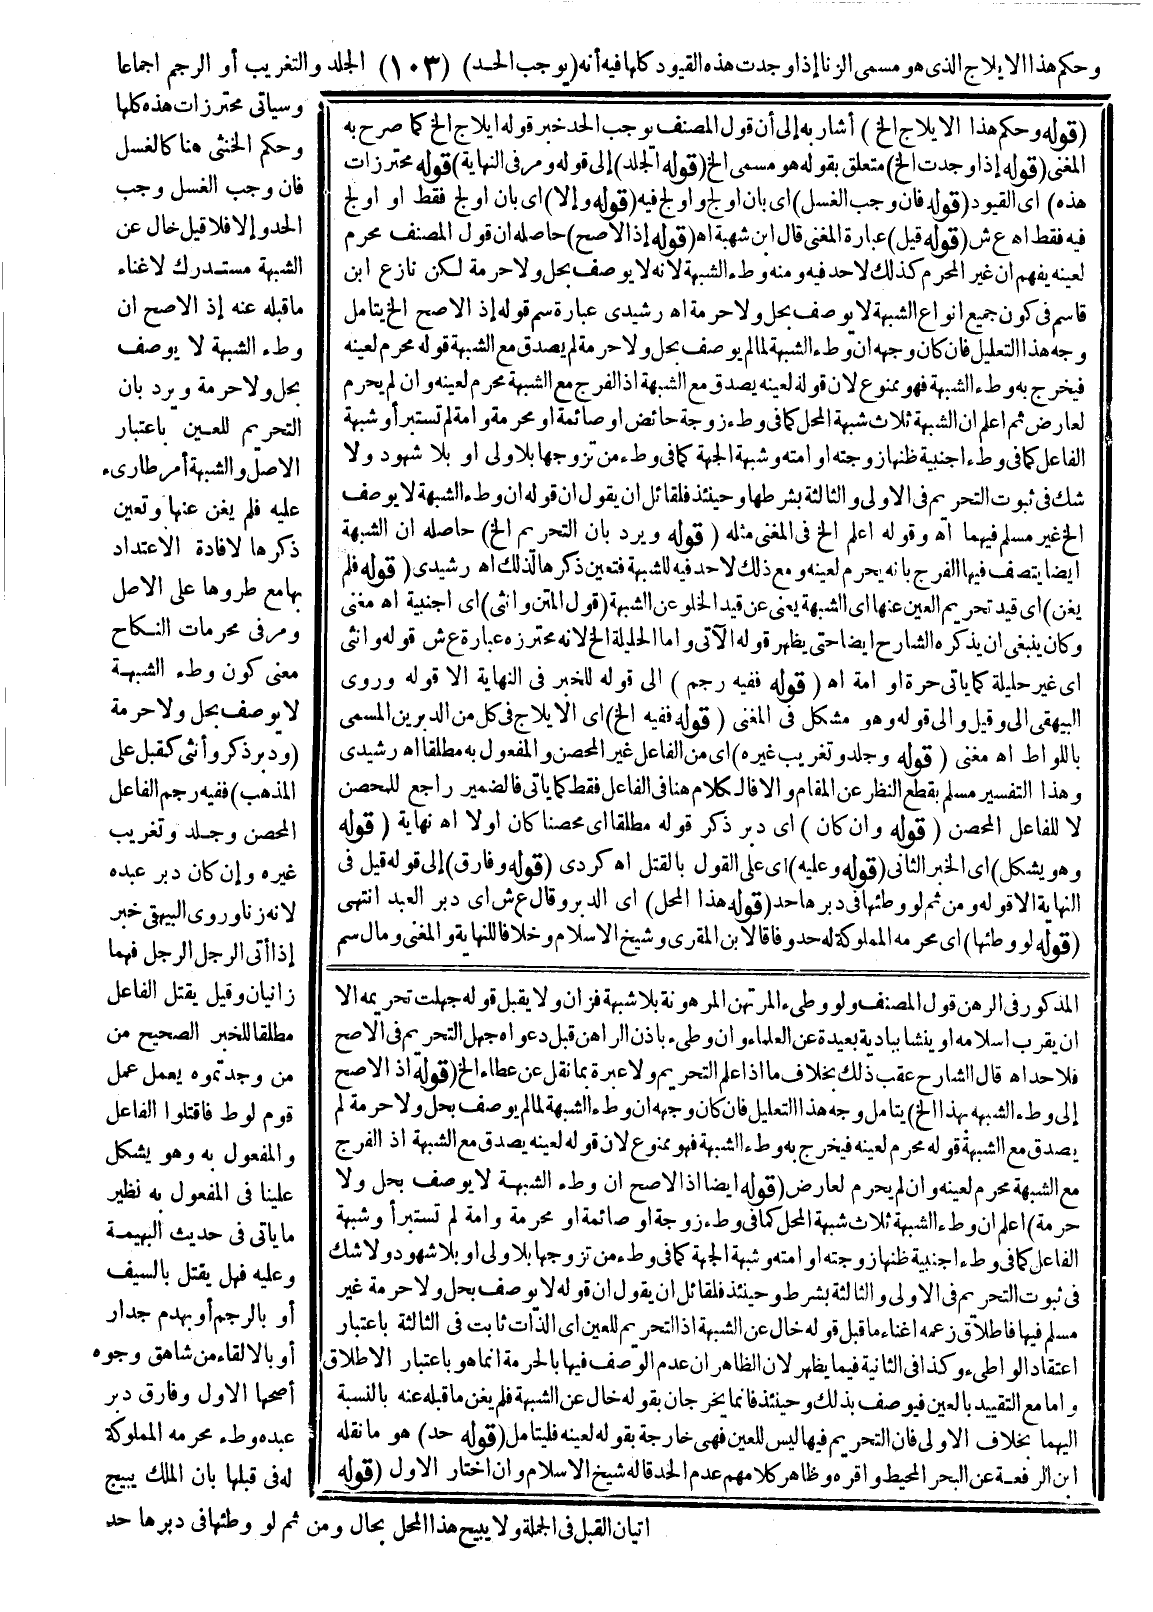 وحكم هذا الايلاج الذى هو مسمى الزنا إذا وجدت هذه القيود كلها فيه أنه (يوجب الحد) (١٠٣) الجلد والتغريب أو الرجم اجماعا
وسياتى محترزات هذه كلها
وحكم الخنثى هنا كالغسل
فان وجب الغسل وجب
الحد وإلا فلا قيل خال عن
الشبهة مستدرك لاغناء
ما قبله عنه إذ الاصح ان
وطء الشبهة لا يوصف
بحل ولا حرمة ويرد بان
التحريم للعين باعتبار
الاصل والشبهة أمر طارىء
عليه فلم يغن عنها وتعين
ذكرها لافادة الاعتداد
بها مع طروها على الاصل
ومر فى محرمات النكاح
معنى كون وطء الشبهة
لا يوصف بحل ولا حرمة
(ودبر ذكر وأنثى كقبل على
المذهب) ففيه رجم الفاعل
المحصن وجلد وتغريب
غيره وإن كان دبر عبده
لانه زنا وروى البيهقى خبر
إذا أتى الرجل الرجل فهما
زانيان وقيل يقتل الفاعل
مطلقا للخبر الصحيح من
من وجدتموه يعمل عمل
قوم لوط فاقتلوا الفاعل
والمفعول به وهو يشكل
علينا فى المفعول به نظير
ما ياتى فى حديث البهيمة
وعليه فهل يقتل بالسيف
أو بالرجم أو بهدم جدار
أو بالالقاء من شاهق وجوه
أصحها الاول وفارق دبر
عبده وطء محرمه المملوكة
له فى قبلها بان الملك يبيح
اتيان القبل فى الجملة ولا يبيح هذا المحل بحال ومن ثم لو وطئها فى دبرها حد
(قوله وحكم هذا الايلاج الخ) أشار به إلى أن قول المصنف يوجب الحد خبر قوله ايلاج الخ كما صرح به
المغنى (قوله إذا وجدت الخ) متعلق بقوله هو مسمى الخ (قوله الجلد) إلى قوله ومر فى النهاية (قوله محترزات
هذه) اى القيود (قوله فان وجب الغسل) اى بان اولج واولج فيه (قوله وإلا) اى بان اولج فقط او اولج
فيه فقط اه ع ش (قوله قيل) عبارة المغنى قال ابن شهبة اه (قوله إذ الاصح) حاصله ان قول المصنف محرم
لعينه يفهم ان غير المحرم كذلك لا حد فيه ومنه وطء الشبهة لانه لا يوصف بحل ولا حرمة لكن نازع ابن
قاسم فى كون جميع انواع الشبهة لا يوصف بحل ولا حرمة اه رشيدى عبارة سم قوله إذ الاصح الخ يتامل
وجه هذا التعليل فان كان وجهه ان وطء الشبهة لما لم يوصف بحل ولا حرمة لم يصدق مع الشبهة قوله محرم لعينه
فيخرج به وطء الشبهة فهو ممنوع لان قوله لعينه يصدق مع الشبهة اذ الفرج مع الشبهة محرم لعينه وان لم يحرم
لعارض ثم اعلم ان الشبهة ثلاث شبهة المحل كما فى وطء زوجة حائض او صائمة او محرمة وامة لم تستبرأ وشبهة
الفاعل كما فى وطء اجنبية ظنها زوجته او امته وشبهة الجهة كما فى وطء من تزوجها بلا ولى او بلا شهود ولا
شك فى ثبوت التحريم فى الاولى والثالثة بشرطها وحينئذ فلقائل ان يقول ان قوله ان وطء الشبهة لا يوصف
الخ غير مسلم فيهما اه وقوله اعلم الخ فى المغنى مثله (قوله ويرد بان التحريم الخ) حاصله ان الشبهة
ايضا يتصف فيها الفرج بانه يحرم لعينه ومع ذلك لا حد فيه للشبهة فتعين ذكرها لذلك اه رشيدى (قوله فلم
يغن) اى قيد تحريم العين عنها اى الشبهة يعنى عن قيد الخلو عن الشبهة (قول المتن وانثى) اى اجنبية اه مغنى
وكان ينبغى ان يذكره الشارح ايضا حتى يظهر قوله الآتى واما الحليلة الخ لانه محترزه عبارة ع ش قوله وانثى
اى غير حليلة كما ياتى حرة او امة اه (قوله ففيه رجم) الى قوله للخبر فى النهاية الا قوله وروى
البيهقى الى وقيل والى قوله وهو مشكل فى المغنى (قوله ففيه الخ) اى الايلاج فى كل من الدبرين المسمى
باللواط اه مغنى (قوله وجلد وتغريب غيره) اى من الفاعل غير المحصن والمفعول به مطلقا اه رشيدى
وهذا التفسير مسلم بقطع النظر عن المقام والا فالكلام هنا فى الفاعل فقط كما ياتى فالضمير راجع للمحصن
لا للفاعل المحصن (قوله وان كان) اى دبر ذكر قوله مطلقا اى محصنا كان اولا اه نهاية (قوله
وهو يشكل) اى الخبر الثانى (قوله وعليه) اى على القول بالقتل اه كردى (قوله وفارق) إلى قوله قيل فى
النهاية الا قوله ومن ثم لو وطئها فى دبرها حد (قوله هذا المحل) اى الدبر وقال ع ش اى دبر العبد انتهى
(قوله لو وطئها) اى محرمه المملوكة له حد وفاقا لابن المقرى وشيخ الاسلام وخلافا للنهاية والمغنى ومال سم
المذكور فى الرهن قول المصنف ولو وطىء المرتهن المرهونة بلا شبهة فزان ولا يقبل قوله جهلت تحريمه الا
ان يقرب اسلامه او ينشا ببادية بعيدة عن العلماء وان وطىء باذن الراهن قبل دعواه جهل التحريم فى الاصح
فلا حد اه قال الشارح عقب ذلك بخلاف ما اذا علم التحريم ولا عبرة بما نقل عن عطاء الخ (قوله اذ الاصح
إلى وطء الشبهه بهذا الخ) يتامل وجه هذا التعليل فان كان وجهه ان وطء الشبهة لما لم يوصف بحل ولا حرمة لم
يصدق مع الشبهة قوله محرم لعينه فيخرج به وطء الشبهة فهو ممنوع لان قوله لعينه يصدق مع الشبهة اذ الفرج
مع الشبهة محرم لعينه وان لم يحرم لعارض (قوله ايضا اذ الاصح ان وطء الشبهة لا يوصف بحل ولا
حرمة) اعلم ان وطء الشبهة ثلاث شبهة المحل كما فى وطء زوجة او صائمة او محرمة وامة لم تستبرأ وشبهة
الفاعل كما فى وطء اجنبية ظنها زوجته او امته وشبهة الجهة كما فى وطء من تزوجها بلا ولى او بلا شهود ولا شك
فى ثبوت التحريم فى الاولى والثالثة بشرط وحينئذ فلقائل ان يقول ان قوله لا يوصف بحل ولا حرمة غير
مسلم فيها فاطلاق زعمه اغناء ما قبل قوله خال عن الشبهة اذ التحريم للعين اى الذات ثابت فى الثالثة باعتبار
اعتقاد الواطىء وكذا فى الثانية فيما يظهر لان الظاهر ان عدم الوصف فيها بالحرمة انما هو باعتبار الاطلاق
واما مع التقييد بالعين فيوصف بذلك وحينئذ فانما يخرجان بقوله خال عن الشبهة فلم يغن ما قبله عنه بالنسبة
اليهما بخلاف الاولى فان التحريم فيها ليس للعين فهى خارجة بقوله لعينه فليتامل (قوله حد) هو ما نقله
ابن الرفعة عن البحر المحيط واقره وظاهر كلامهم عدم الحد قاله شيخ الاسلام وان اختار الاول (قوله